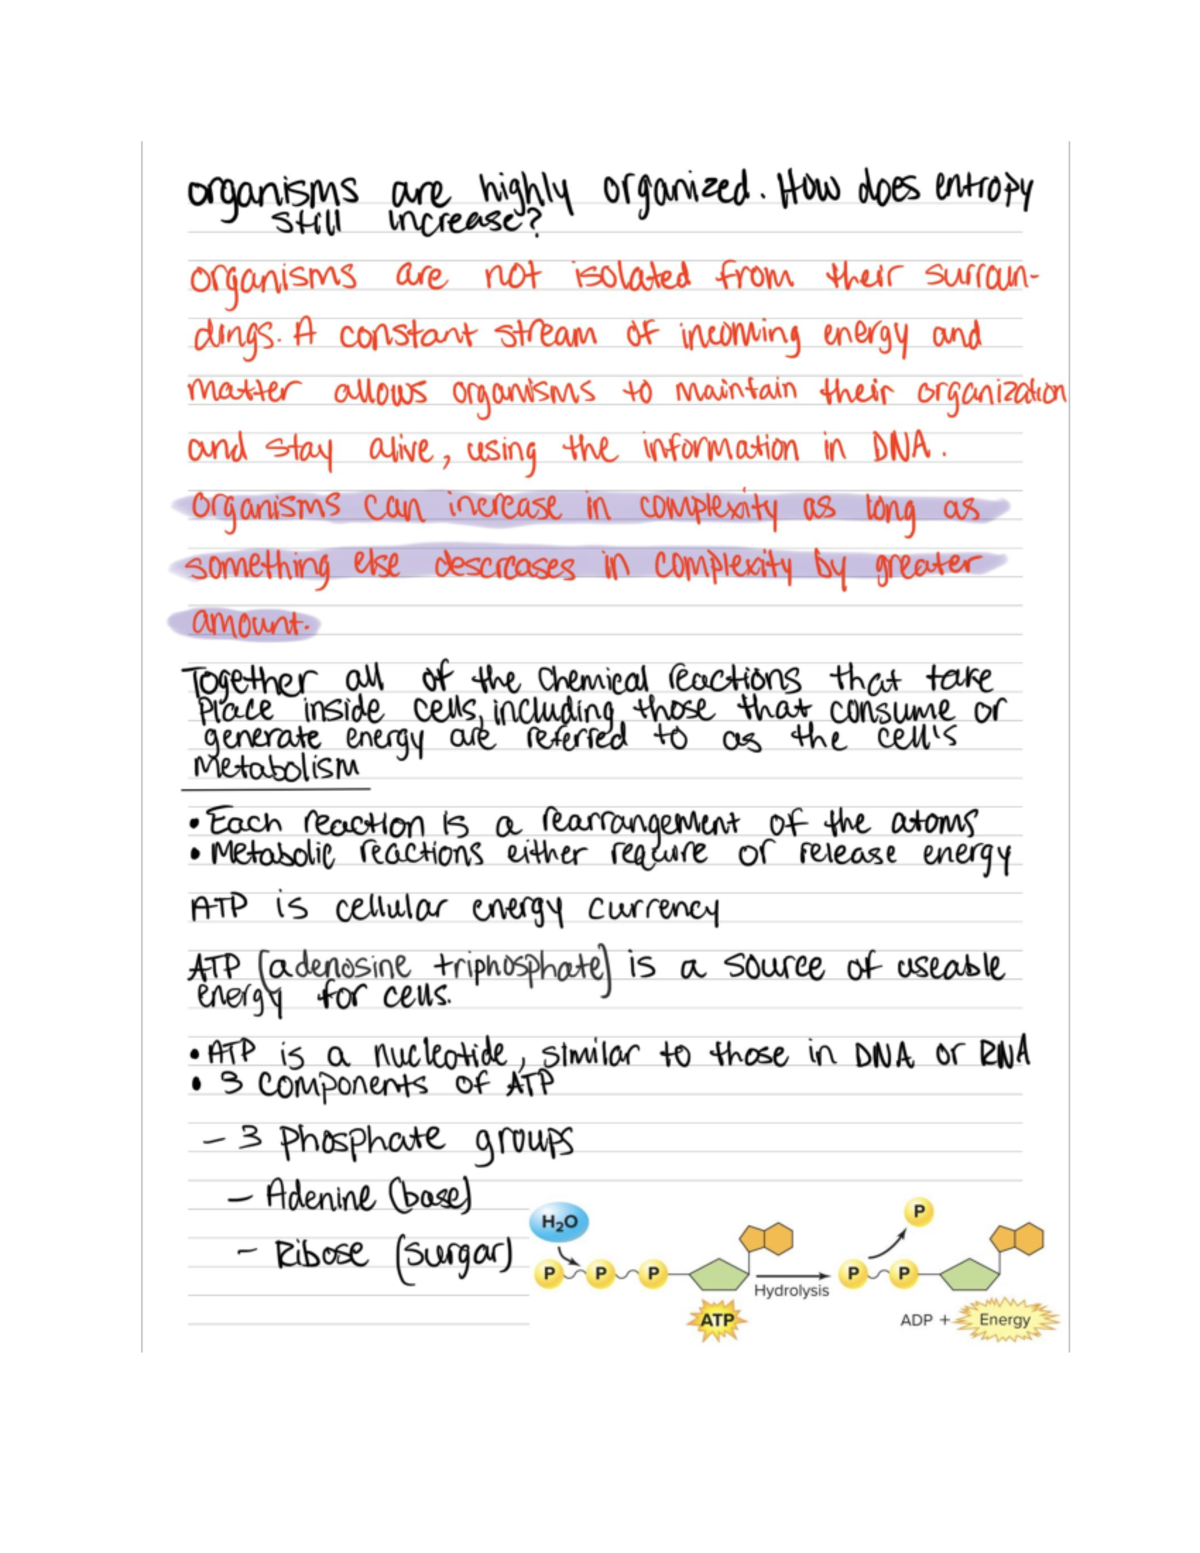 organisms are highly organized. How does entropy
still increase?
organisms are not isolated from their surroun-
dings. A constant stream of incoming energy and
matter allows organisms to maintain their organization
and stay alive, using the information in DNA.
organisms can increase in complexity as long as
something else descreases in complexity by greater
amount.
Together all of the chemical reactions that take
place inside cells, including those that consume or
generate energy are referred to as the cell's
Metabolism
• Each reaction is a rearrangement of the atoms
• Metabolic reactions either require or release energy
ATP is cellular energy currency
ATP (adenosine triphosphate) is a source of useable
energy for cells.
• ATP is a nucleotide, similar to those in DNA or RNA
• 3 components of ATP
- 3 Phosphate groups
- Adenine (base)
- Ribose (surgar)
H₂O
P P P
Hydrolysis
P P P
ATP
ADP + Energy